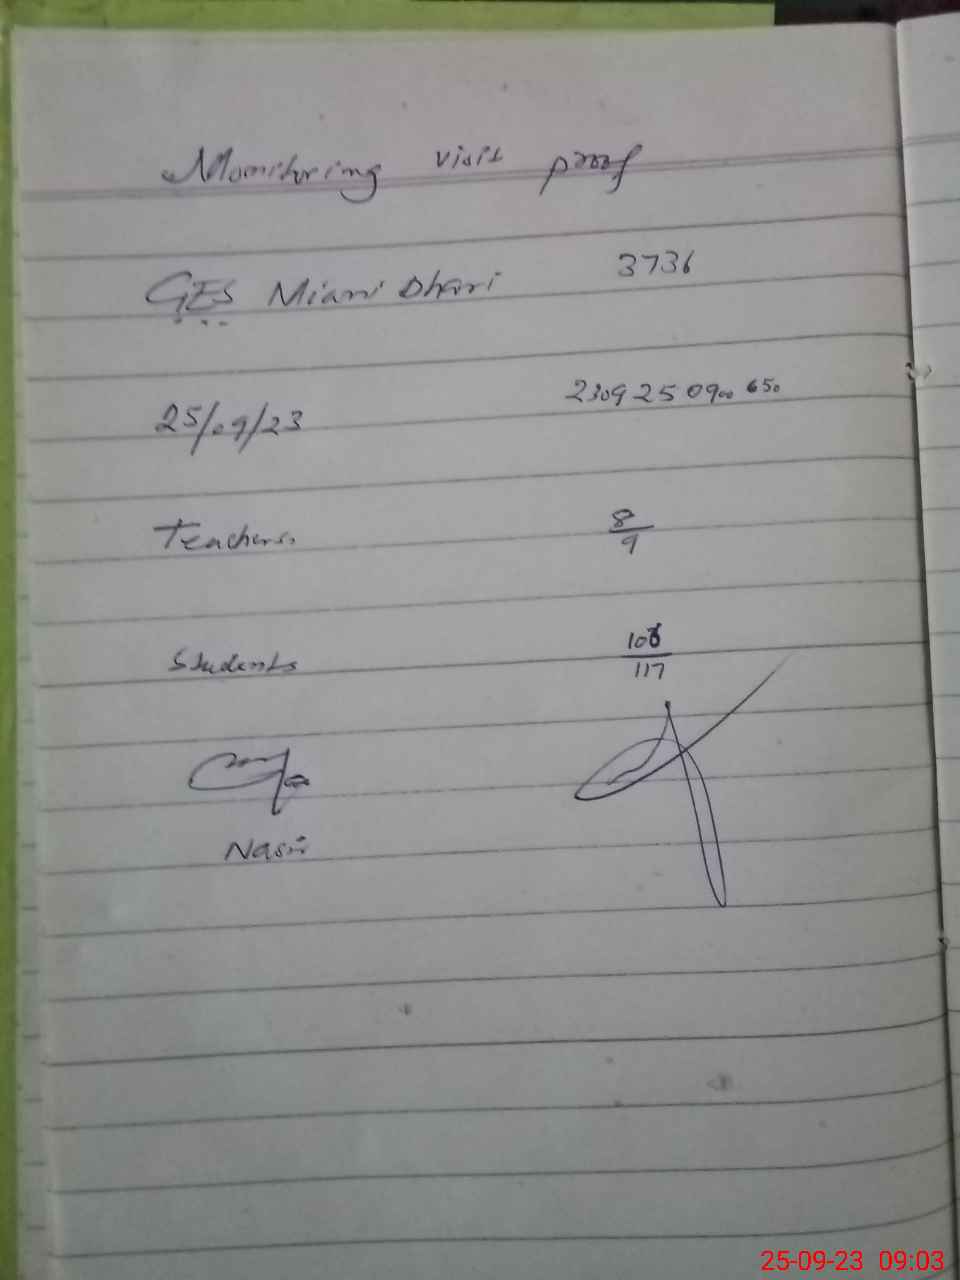 Monitoring visit proof
GES Miani Dhari 3736
25/09/23 230925 0900 650
Teachers. 8/9
Students 108/117
Nasir
25-09-23 09:03